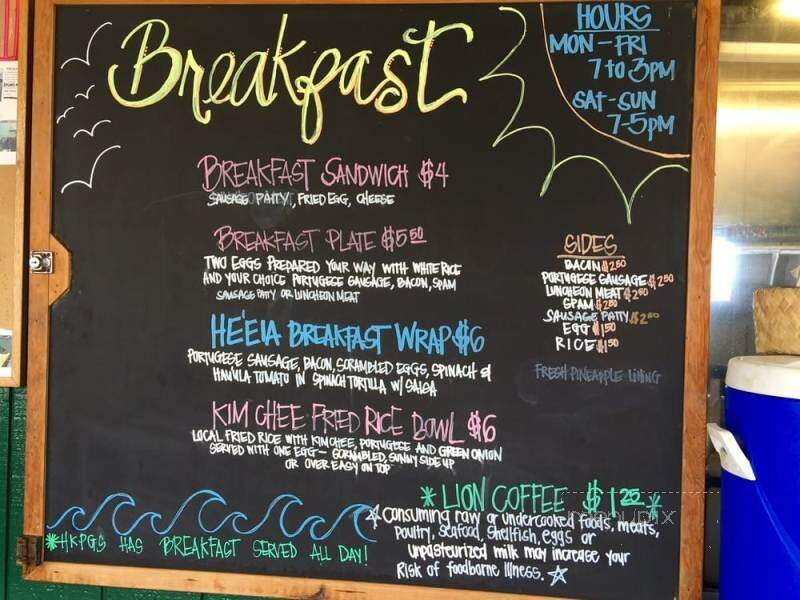 Breakfast
HOURS
MON-FRI
7 to 3PM
SAT-SUN
7-5PM
BREAKFAST SANDWICH $4
SAUSAGE PATTY, FRIED EGG, CHEESE
BREAKFAST PLATE $5.50
TWO EGGS PREPARED YOUR WAY WITH WHITE RICE
AND YOUR CHOICE PORTUGESE SAUSAGE, BACON, SPAM
SAUSAGE PATTY OR LUNCHEON MEAT
HE'EIA BREAKFAST WRAP $6
PORTUGESE SAUSAGE, BACON, SCRAMBLED EGGS, SPINACH &
HAU'ULA TOMATO IN SPINACH TORTILLA W/ SALSA
KIM CHEE FRIED RICE BOWL $6
LOCAL FRIED RICE WITH KIMCHEE, PORTUGESE AND GREEN ONION
SERVED WITH ONE EGG - SCRAMBLED, SUNNY SIDE UP
OR OVER EASY ON TOP
SIDES
BACON $2.50
PORTUGESE SAUSAGE $2.50
LUNCHEON MEAT $2.50
SPAM $2.50
SAUSAGE PATTY $2.50
EGG $1.50
RICE $1.50
FRESH PINEAPPLE
*LION COFFEE $1.25*
☆Consuming raw or undercooked foods, meats,
Poultry, Seafood, Shellfish, eggs or
unpasteurized milk may increase your
Risk of foodborne Illness.☆
*HKPGS HAS BREAKFAST SERVED ALL DAY!